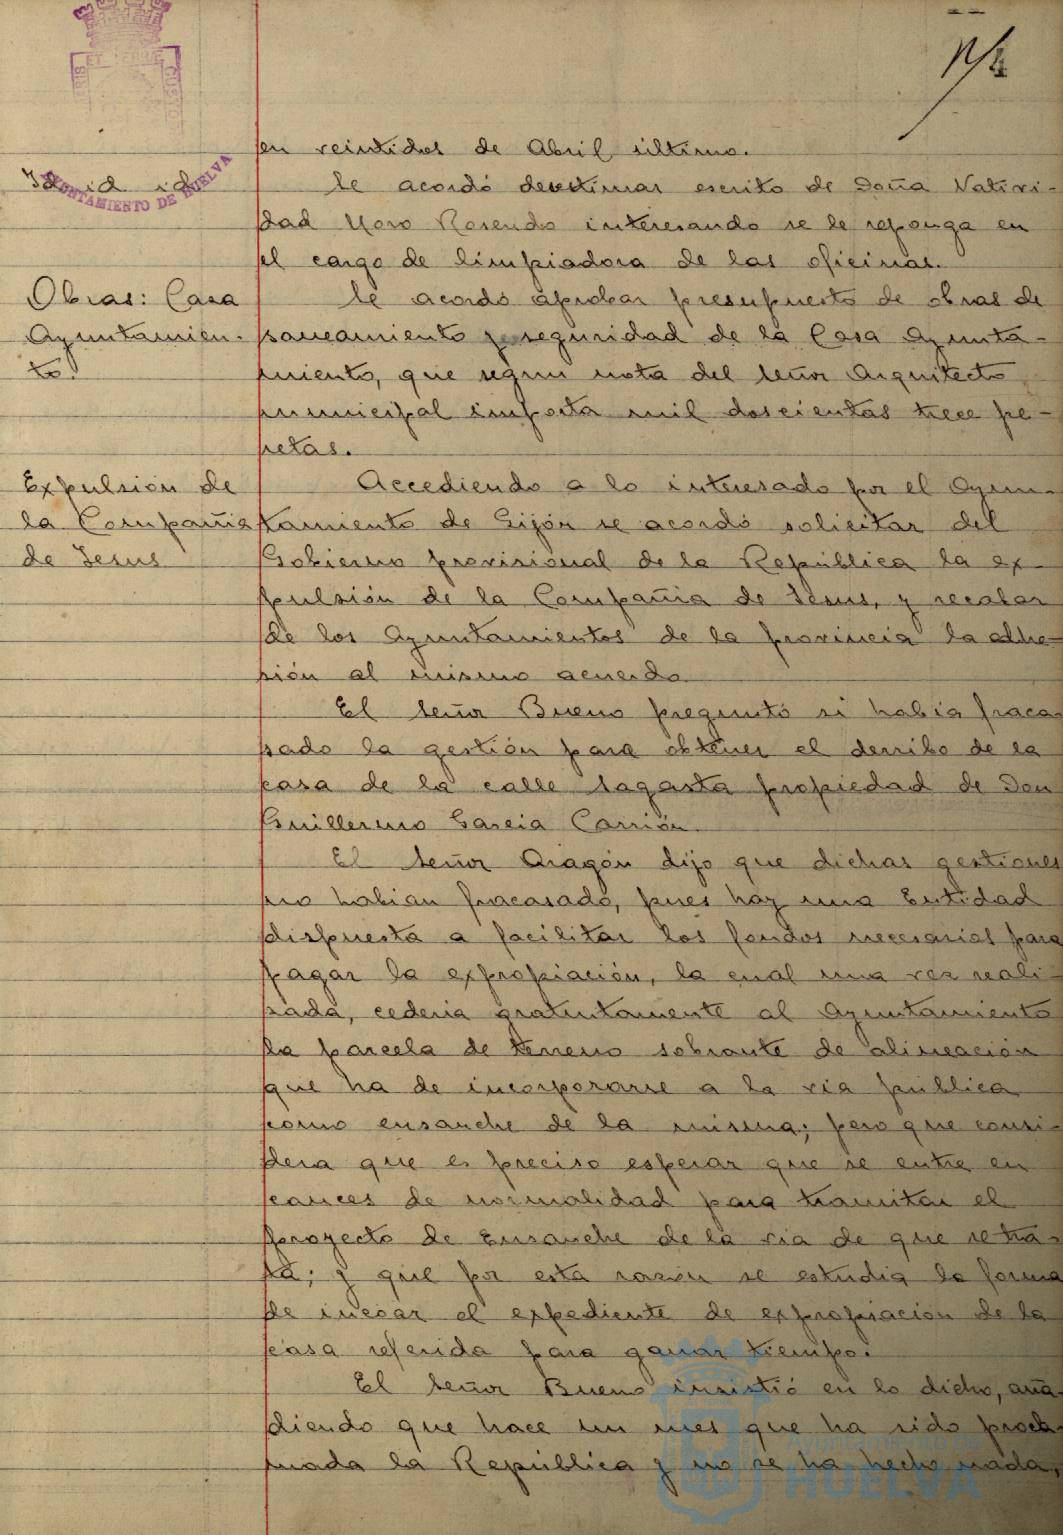 en veintidos de Abril último.
Id id id
AYUNTAMIENTO DE HUELVA
Se acordó desestimar escrito de Doña Nativi-
dad Moro Rosendo interesando se le reponga en
el cargo de limpiadora de las oficinas.
Obras: Casa
Ayuntamien-
to.
Se acordó aprobar presupuesto de obras de
saneamiento y seguridad de la Casa Ayunta-
miento, que segun nota del Señor Arquitecto
municipal importa mil doscientas trece pe-
setas.
Expulsión de
la Compañia
de Jesus
Accediendo a lo interesado por el Ayun-
tamiento de Gijón se acordó solicitar del
Gobierno provisional de la República la ex-
pulsión de la Compañia de Jesus, y recabar
de los Ayuntamientos de la provincia la adhe-
sión al mismo acuerdo.
El Señor Bueno preguntó si habia fraca-
sado la gestión para obtener el derribo de la
casa de la calle Sagasta propiedad de Don
Guillermo Garcia Carrión.
El Señor Aragón dijo que dichas gestiones
no habian fracasado, pues hay una Entidad
dispuesta a facilitar los fondos necesarios para
pagar la expropiación, la cual una vez reali-
zada, cederia gratuitamente al Ayuntamiento
la parcela de terreno sobrante de alineación
que ha de incorporarse a la via pública
como ensanche de la misma; pero que consi-
dera que es preciso esperar que se entre en
cauces de normalidad para tramitar el
proyecto de Ensanche de la via de que se tra-
ta; y que por esta razón se estudia la forma
de incoar el expediente de expropiación de la
casa referida para ganar tiempo.
El Señor Bueno insistió en lo dicho, aña-
diendo que hace un mes que ha sido procla-
mada la República y no se ha hecho nada,
HUELVA